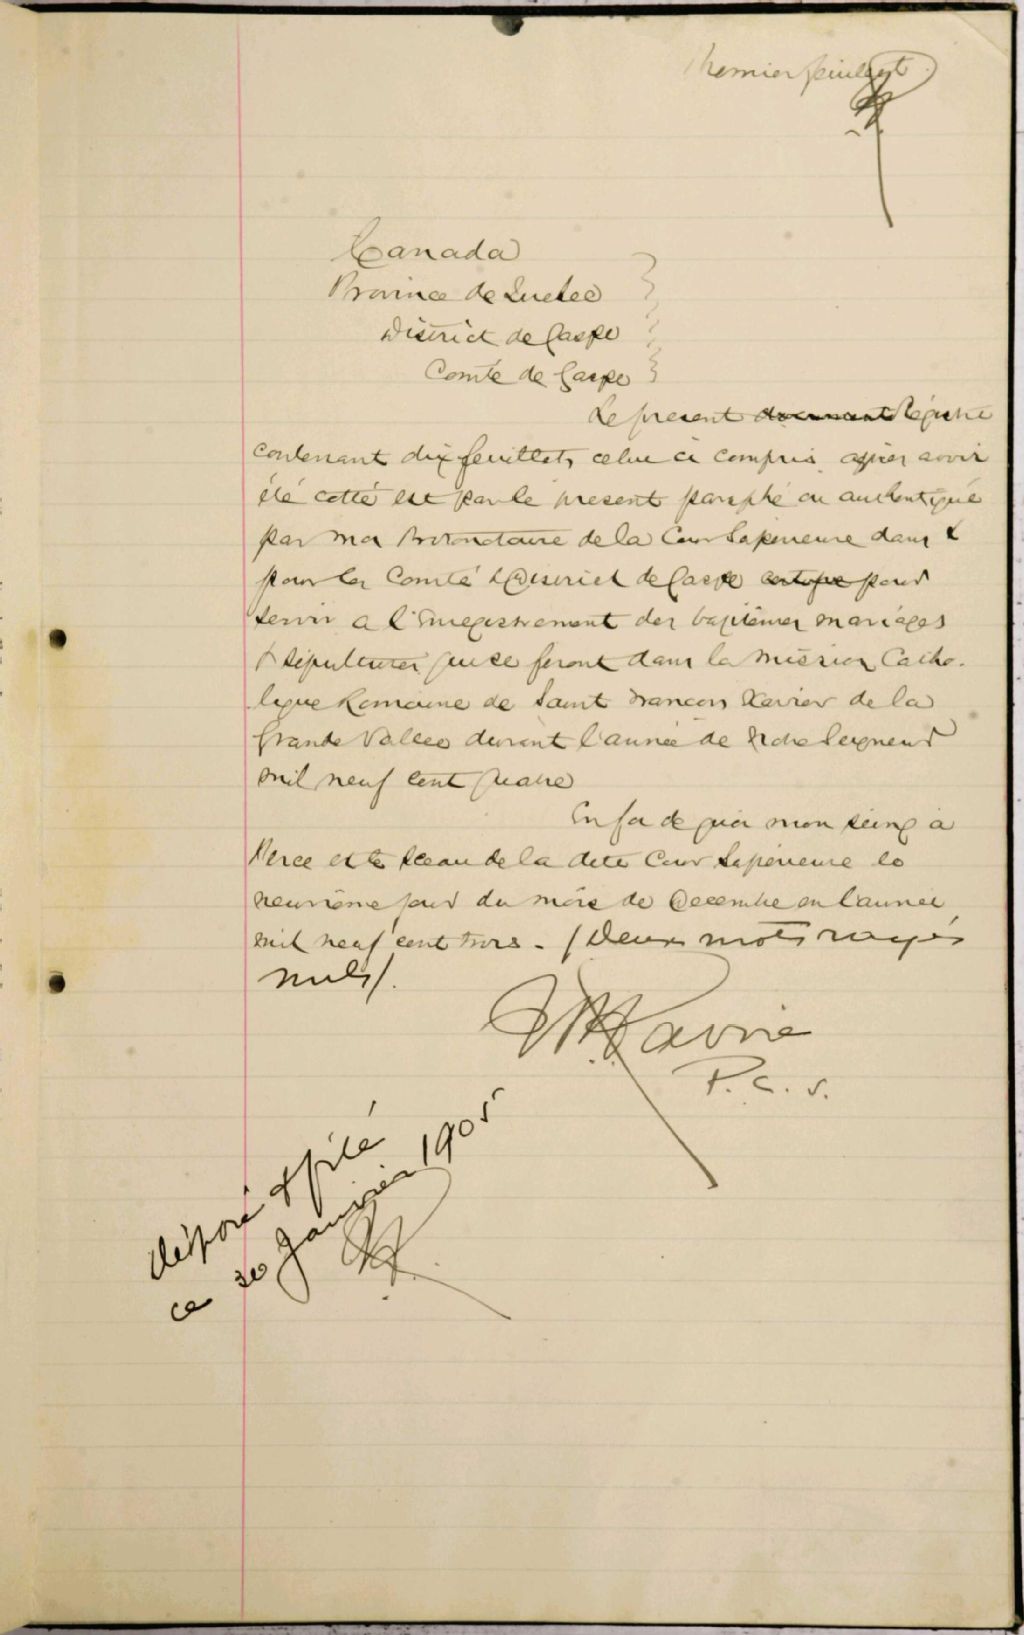 Premier feuillet
Canada
Province de Quebec
District de Gaspe
Comté de Gaspe
Le present document Régistre
contenant dix feuillets celui ci compris après avoir
été cotté est par le present paraphé ou authentiqué
par moi Protonotaire de la Cour Superieure dans &
pour le Comté & District de Gaspe pour
servir a l'Enregistrement des baptêmes mariages
& sépultures qui se feront dans la mission Catho-
lique Romaine de Saint Francois Xavier de la
Grande Vallee durant l'année de Notre Seigneur
mil neuf cent quatre
En foi de quoi mon seing a
Perce et le Sceau de la dite Cour Superieure le
neuvième jour du mois de Decembre en l'annee
mil neuf cent trois - (Deux mots rayés
nuls).
Lavoie
P.C.S.
déposé & filé
ce 30 Janvier 1905